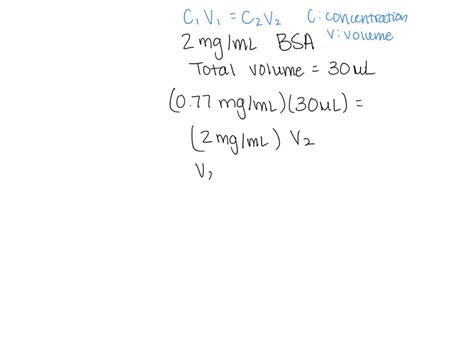 C₁V₁ = C₂V₂ C: concentration
V: volume
2 mg/mL BSA
Total volume = 30 uL
(0.77 mg/mL)(30uL) =
(2 mg/mL) V₂
V₂